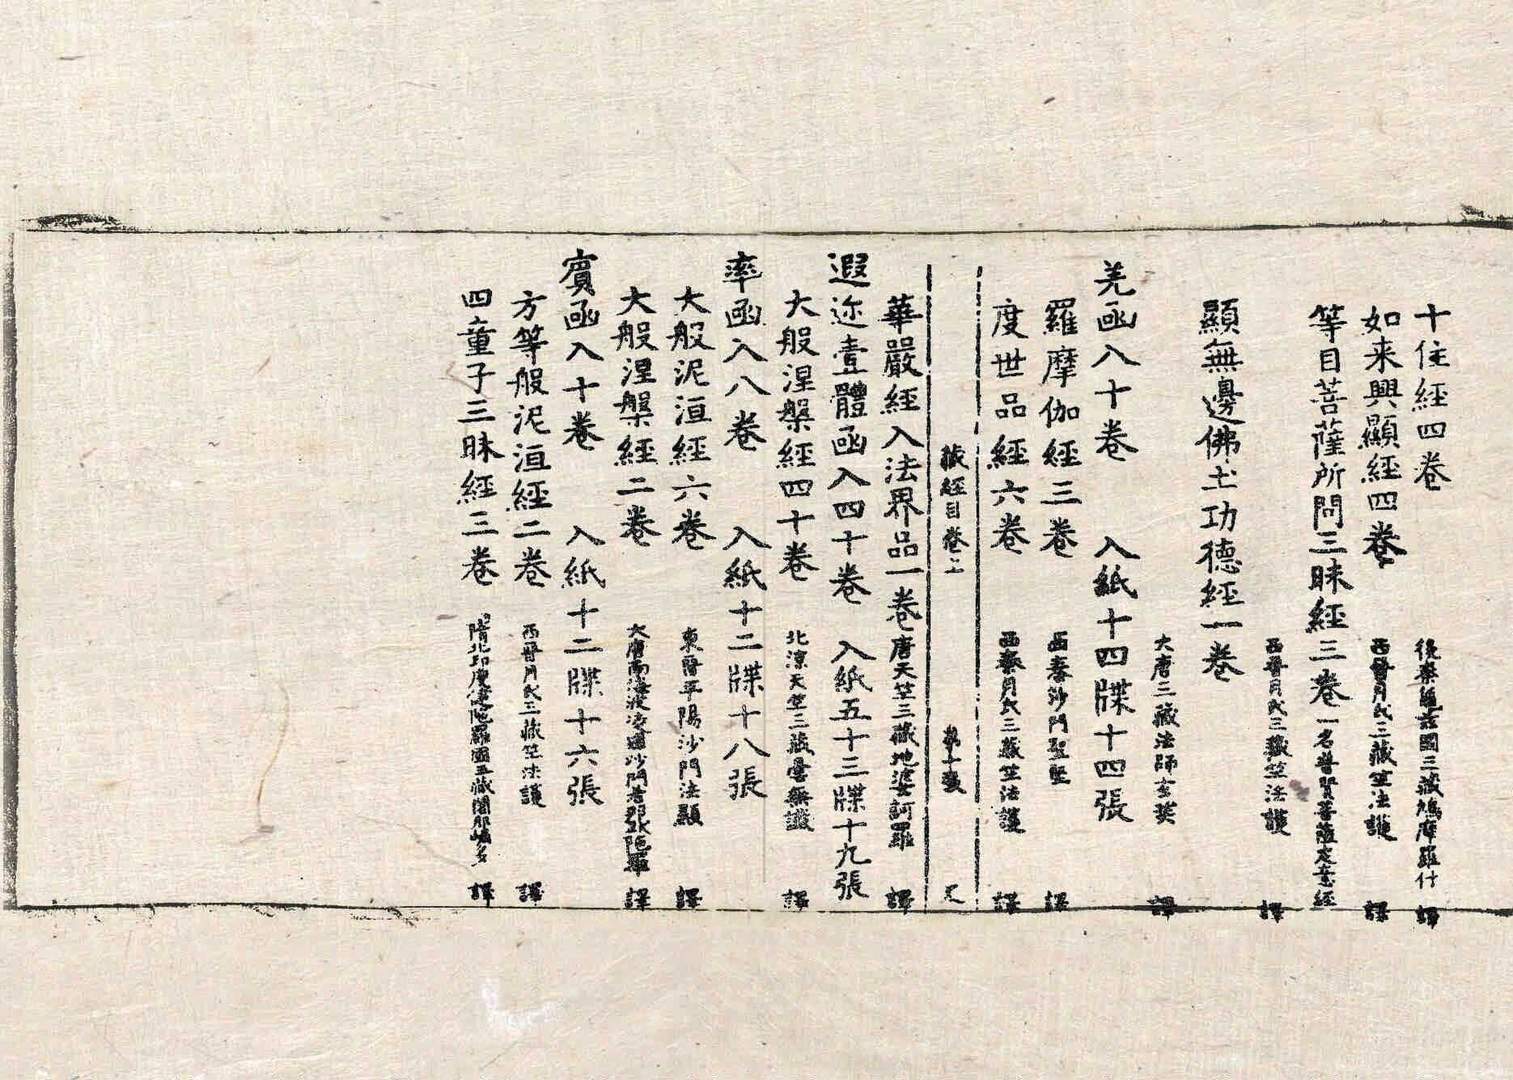 十住經四卷 後秦龜茲國三藏鳩摩羅什 譯
如来興顯經四卷 西晉月氏三藏竺法護 譯
等目菩薩所問三昧經三卷一名普賢菩薩定意經
西晉月氏三藏竺法護 譯
顯無邊佛土功德經一卷
大唐三藏法師玄奘 譯
羌函入十卷 入紙十四牒十四張
羅摩伽經三卷 西秦沙門聖堅 譯
度世品經六卷 西秦月氏三藏竺法護 譯
藏經目卷上
華嚴經入法界品一卷唐天竺三藏地婆訶羅 譯
遐迩壹體函入四十卷 入紙五十三牒十九張
大般涅槃經四十卷 北凉天竺三藏曇無讖 譯
率函入八卷 入紙十二牒十八張
大般泥洹經六卷 東晉平陽沙門法顯 譯
大般涅槃經二卷 大唐南海波淩國沙門若那跋陁羅 譯
賓函入十卷 入紙十二牒十六張
方等般泥洹經二卷 西晉月氏三藏竺法護 譯
四童子三昧經三卷 隋北印度揵陁羅國三藏闍那崛多 譯